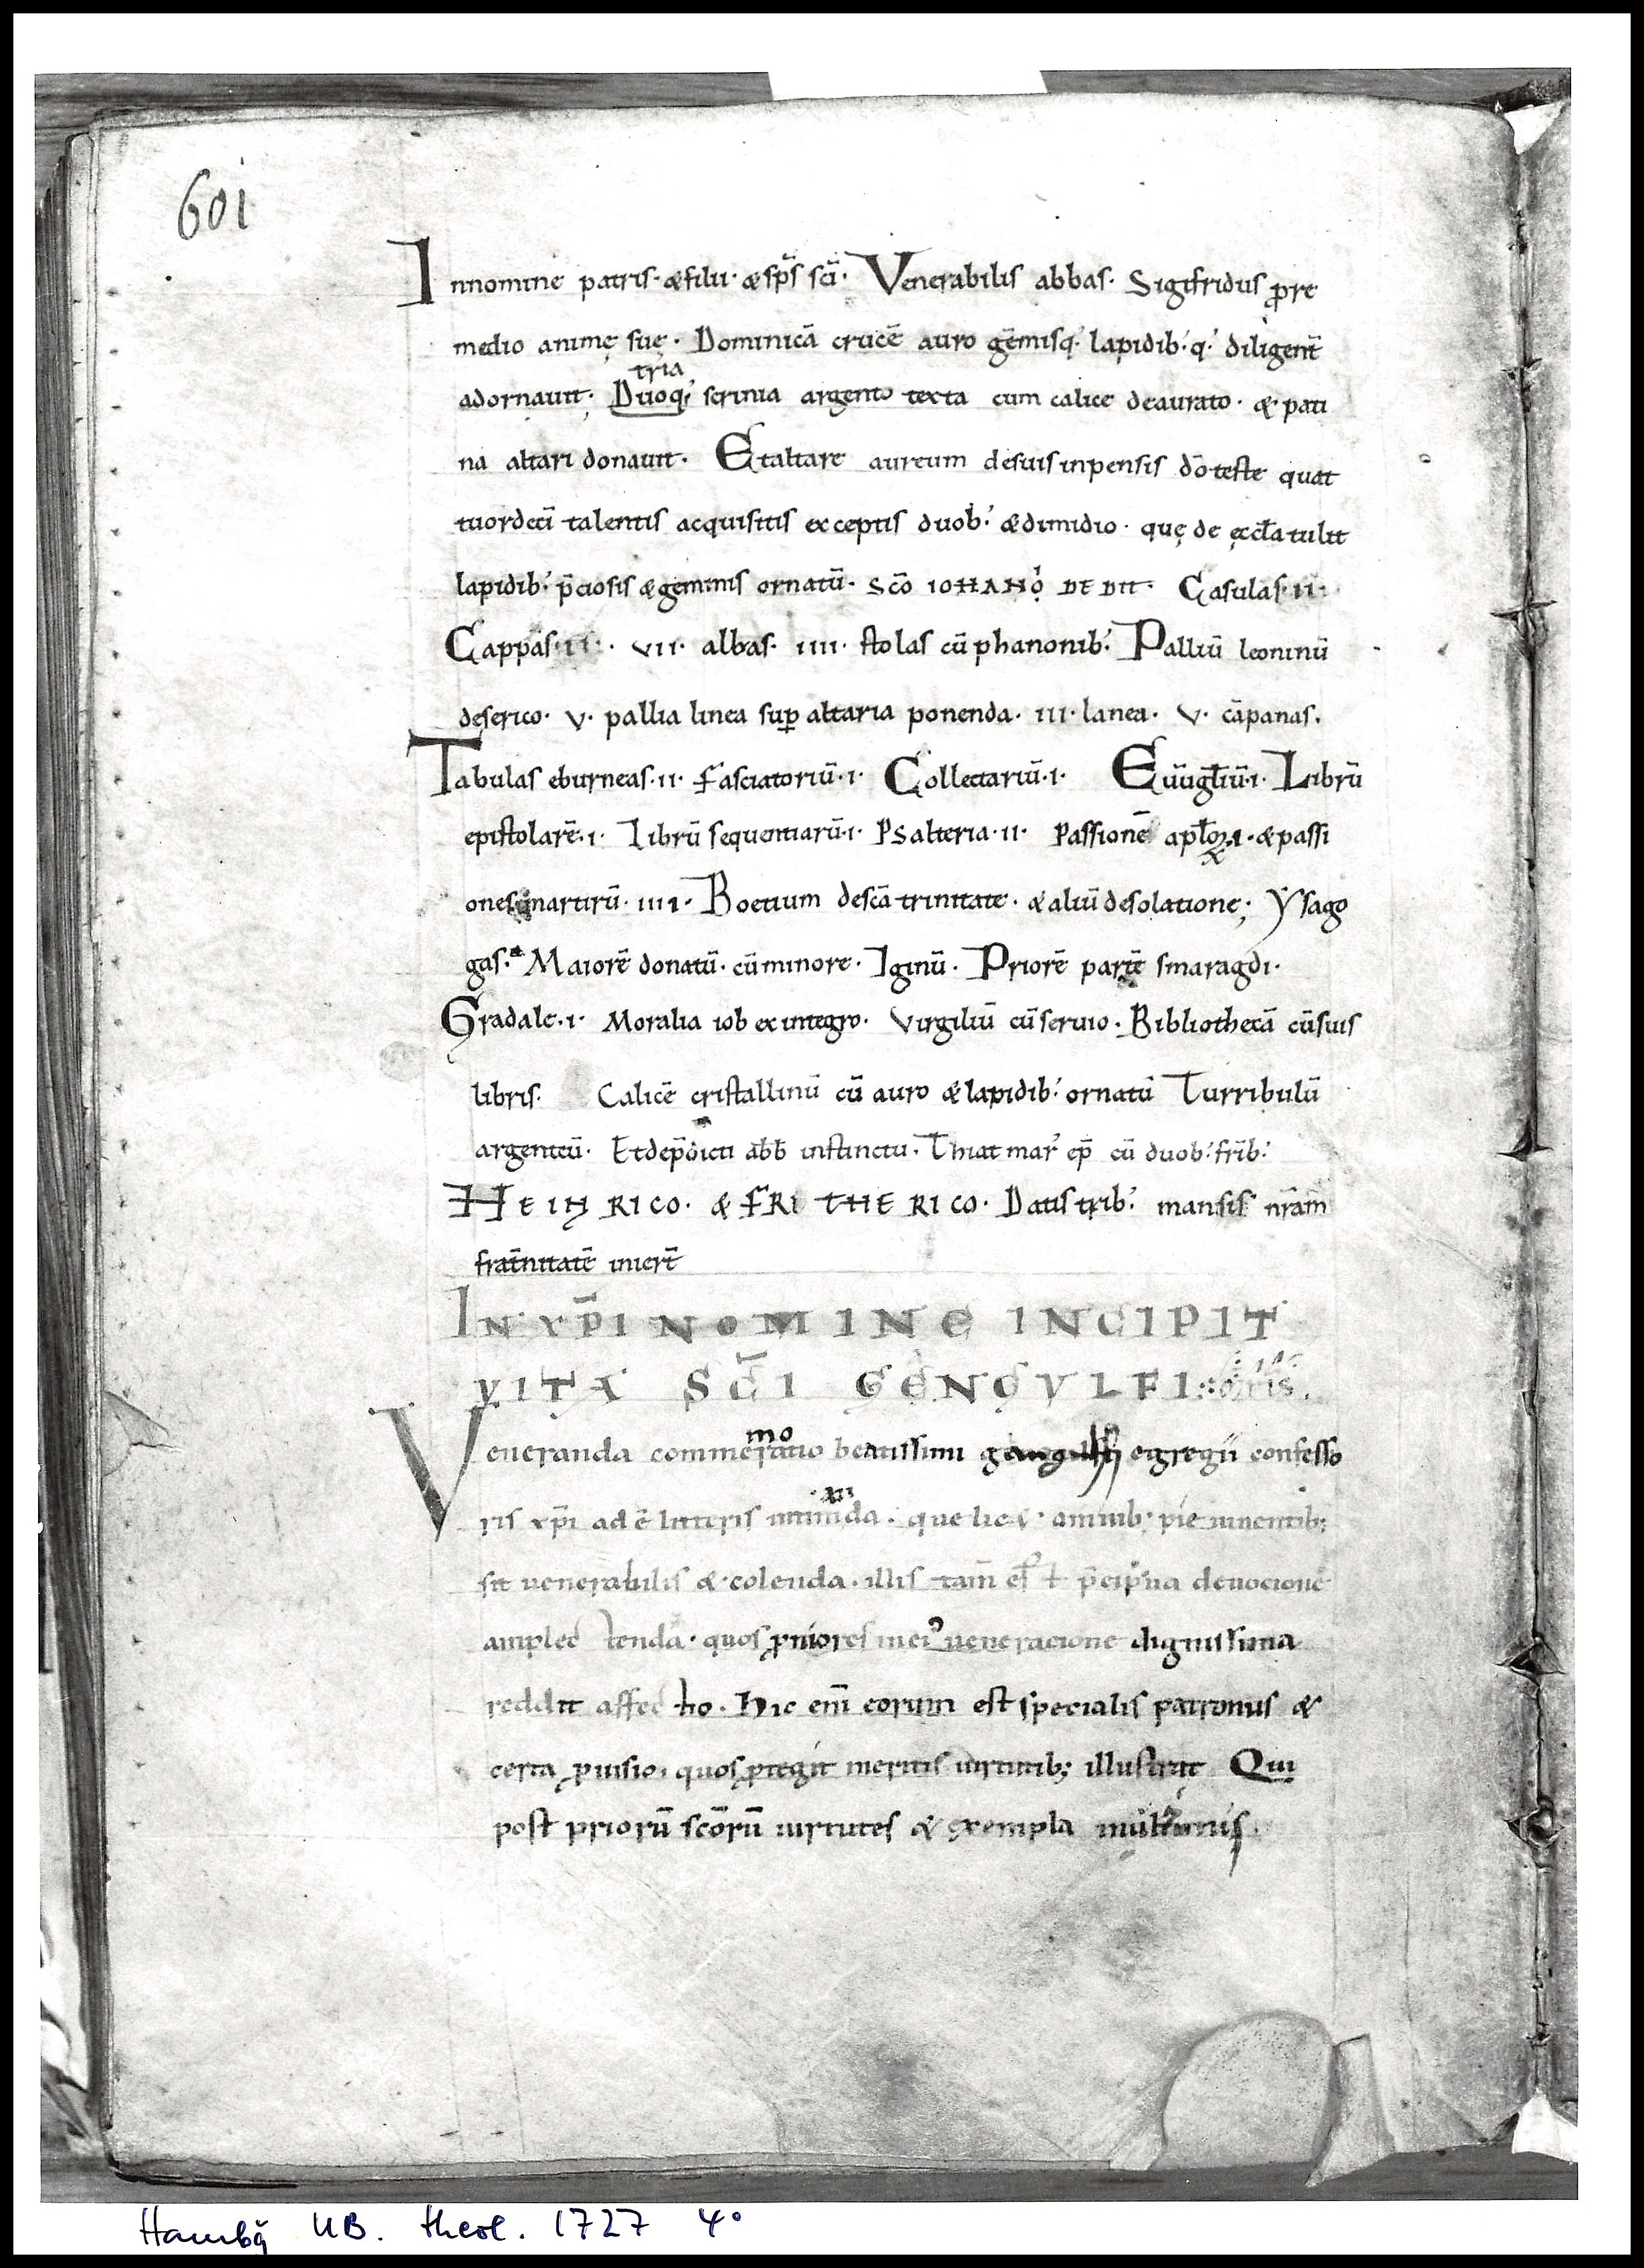 601
Innomine patris· &filii· &sp̄s sc̄i· Venerabilis abbas· Sigifridus ꝓre
medio animę suę· Dominicā crucē auro gēmisq; lapidib;q; diligent̄
adornauit· tria Duoq; scrinia argento tecta cum calice deaurato· & pati
na altari donauit· Etaltare aureum desuisinpensis dō teste quat
tuordecī talentis acquisitis exceptis duob; &dimidio· quę de ęccl̄a tulit
lapidib; p̄ciosis &gemmis ornatū· scō IOHANꝊ DEDIT· Casulas·II·
Cappas·II· · VII· albas· IIII· stolas cū phanonib; Palliū leoninū
deserico· V· pallia linea suꝑ altaria ponenda· III· lanea· V· cāpanas.
Tabulas eburneas·II· Fasciatoriū·I· Collectariū·I· Eūūgl̄iū·I· Librū
epistolarē·I· Librū sequentiarū·I· Psalteria·II· Passionē apl̄oꝝ·I· &passi
ones martirū· IIII· Boetium descā trinitate· &aliū desolatione; Ysago
gas· Maiorē donatū· cū minore· Iginū· Priorē partē smaragdi·
Gradale·I· Moralia iob ex integro· Virgiliū cū seruio· Bibliothecā cū suis
libris· Calicē cristallinū cū auro &lapidib; ornatū Turribulū
argenteū· Et dep̄dicti abb̄ instinctu· Thiatmar' ep̄ cū duob; fr̄ib;
HEINRICO· & FRITHERICO· Datis trib; mansis nr̄am
frat̄nitatē inier̄t
IN XP̄I NOMINE INCIPIT
VITA SC̄I GENGVLFI
Veneranda commemoratio beatissimi gangulfi egregii confesso
ris xp̄i ad ē litteris que pie uiuentib;
sit uenerabilis &·colenda· illis tam̄ p̄cipua deuocione
amplectenda· quos ꝓniores ueneracione dignissima
reddit affectio· Hic eni̅ eorum est specialis patronus &
certa ꝓuisio· quos ꝓtegit meritis uirtutib; illustrat Qui
post priorū scōrū uirtutes & exempla
Hambg UB. theol. 1727 4°